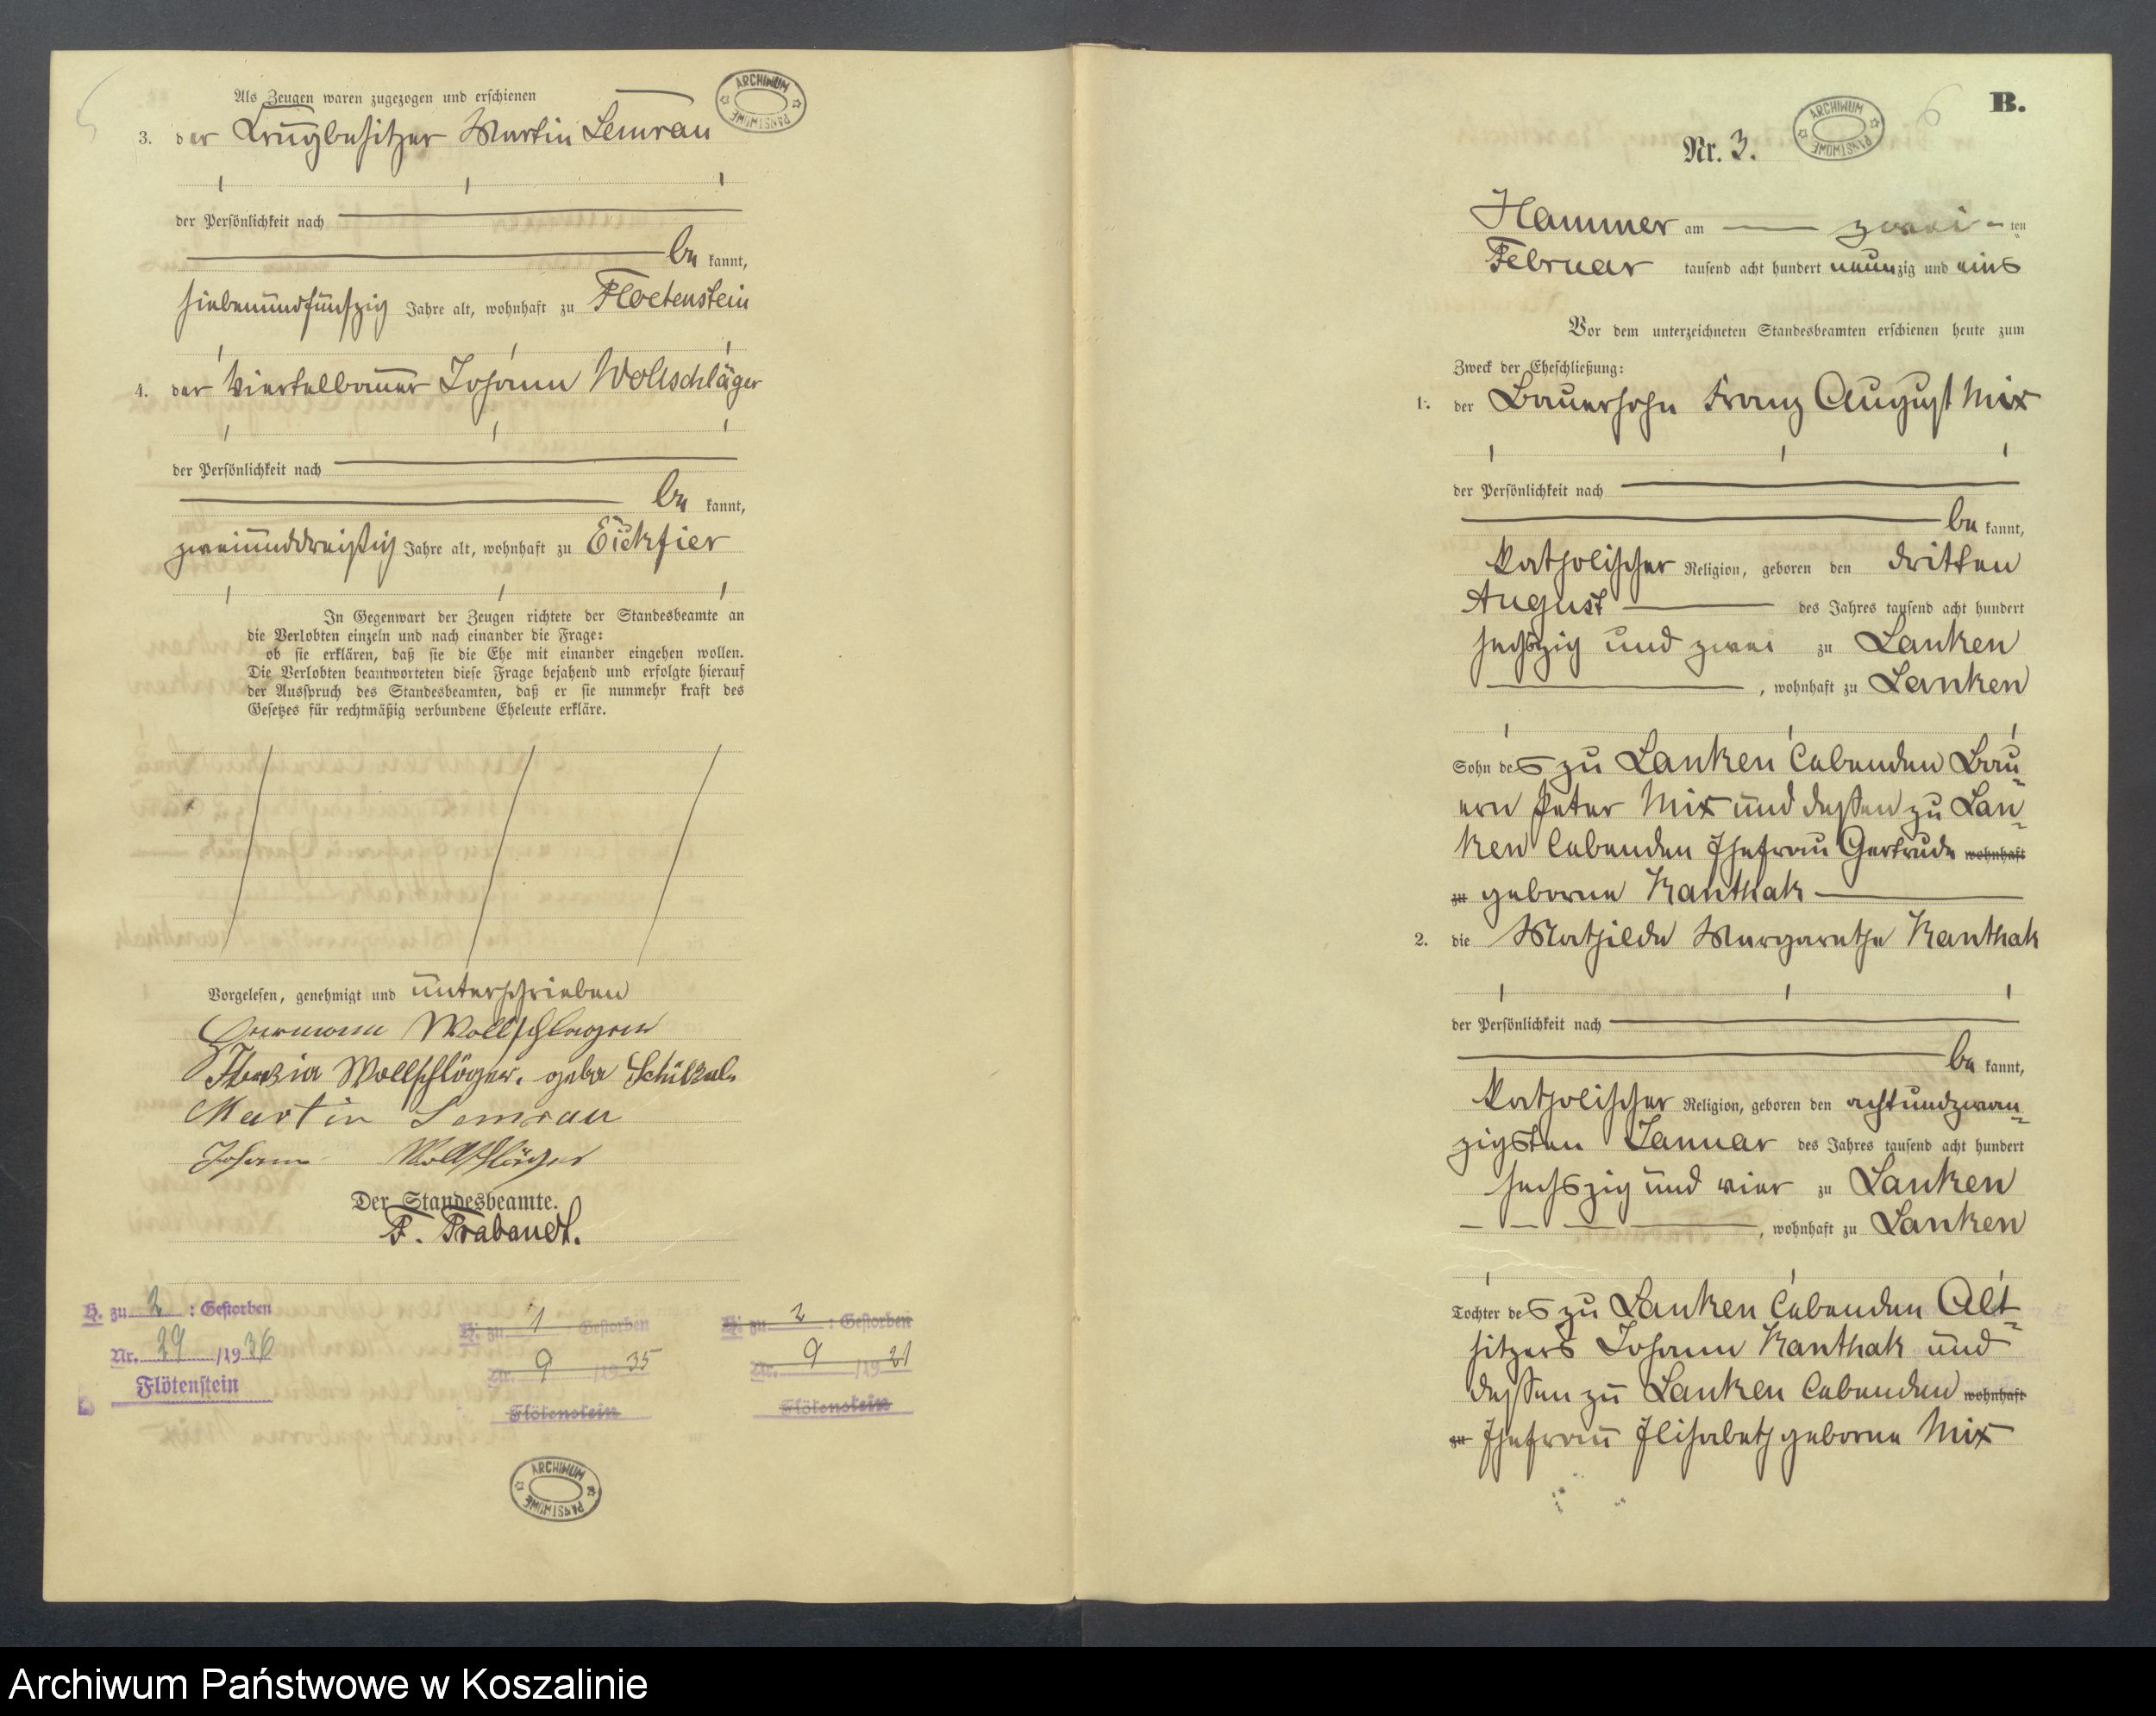 Als Zeugen waren zugezogen und erschienen
3. der Krugbesitzer Martin Semrau
der Persönlichkeit nach
be kannt,
siebenundfünfzig Jahre alt, wohnhaft zu Floetenstein
4. der Viertelbauer Johann Wollschläger
der Persönlichkeit nach
be kannt,
zweiunddreißig Jahre alt, wohnhaft zu Eickfier
In Gegenwart der Zeugen richtete der Standesbeamte an
die Verlobten einzeln und nach einander die Frage:
ob sie erklären, daß sie die Ehe mit einander eingehen wollen.
Die Verlobten beantworteten diese Frage bejahend und erfolgte hierauf
der Ausspruch des Standesbeamten, daß er sie nunmehr kraft des
Gesetzes für rechtmäßig verbundene Eheleute erkläre.
Vorgelesen, genehmigt und unterschrieben
Hermann Wollschlaeger
Wollschläger
Martin Semrau
Johann Wollschläger
Der Standesbeamte.
F. Brabandt.
H. zu 2 : Gestorben
Nr. 29 /1936
Flötenstein
H. zu 1 Gestorben
Nr. 9 /19 35
Flötenstein
H. zu 2 : Gestorben
Nr. 9 /19 21
Flötenstein
ARCHIWUM PAŃSTWOWE
ARCHIWUM PAŃSTWOWE
6
B.
ARCHIWUM PAŃSTWOWE
Nr. 3.
Hammer am zwei ten
Februar tausend acht hundert neunzig und eins
Vor dem unterzeichneten Standesbeamten erschienen heute zum
Zweck der Eheschließung:
1. der Bauersohn Franz August Mix
der Persönlichkeit nach
be kannt,
katholischer Religion, geboren den dritten
August des Jahres tausend acht hundert
sechszig und zwei zu Lanken
, wohnhaft zu Lanken
Sohn des zu Lanken lebenden Bau-
ern Peter Mix und dessen zu Lan-
ken lebenden Ehefrau Gertrude wohnhaft
zu geborne Kanthak
2. die Mathilde Margarethe Kanthak
der Persönlichkeit nach
be kannt,
katholischer Religion, geboren den achtundzwan-
zigsten Januar des Jahres tausend acht hundert
sechszig und vier zu Lanken
, wohnhaft zu Lanken
Tochter des zu Lanken lebenden Alt-
sitzers Johann Kanthak und
dessen zu Lanken lebenden wohnhaft
zu Ehefrau Elisabeth geborne Mix
Archiwum Państwowe w Koszalinie